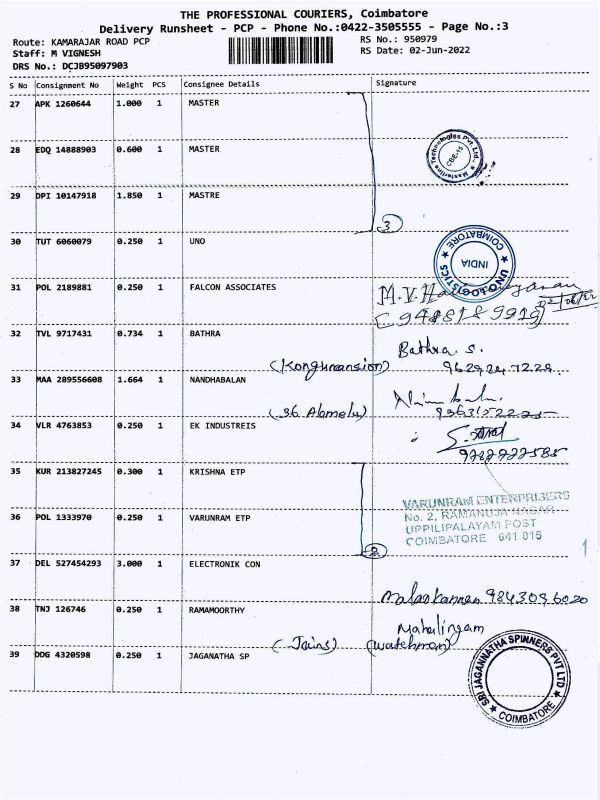 THE PROFESSIONAL COURIERS, Coimbatore
Delivery Runsheet - PCP - Phone No.:0422-3505555 - Page No.:3
Route: KAMARAJAR ROAD PCP RS No.: 950979
Staff: M VIGNESH RS Date: 02-Jun-2022
DRS No.: DCJB95097903
S No Consignment No Weight PCS Consignee Details Signature
27 APK 1260644 1.000 1 MASTER
28 EDQ 14888903 0.600 1 MASTER
Masterline Technologies Pvt. Ltd.
CBE-15
29 DPI 10147918 1.850 1 MASTRE
3
30 TUT 6060079 0.250 1 UNO
UNO LOGISTICS
INDIA
COIMBATORE
31 POL 2189881 0.250 1 FALCON ASSOCIATES
M.V.
32 TVL 9717431 0.734 1 BATHRA
Bathra. S.
(Kongumansion)
33 MAA 289556608 1.664 1 NANDHABALAN
(36. Alamelu)
34 VLR 4763853 0.250 1 EK INDUSTREIS
9788922585
35 KUR 213827245 0.300 1 KRISHNA ETP
36 POL 1333970 0.250 1 VARUNRAM ETP
VARUNRAM ENTERPRISERS
No. 2, RAMANUJA NAGAR
UPPILIPALAYAM POST
COIMBATORE 641 015
2
37 DEL 527454293 3.000 1 ELECTRONIC CON
9843096020
38 TNJ 126746 0.250 1 RAMAMOORTHY
Mahalingam
(Jains) (watchman)
39 DDG 4320598 0.250 1 JAGANATHA SP
SRI JAGANNATHA SPINNERS PVT LTD
COIMBATORE